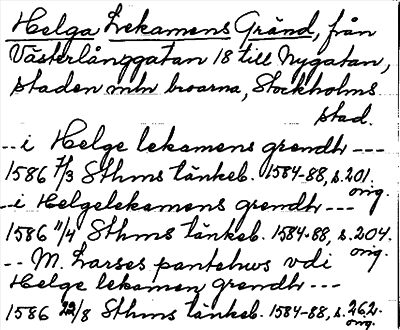 Helga Lekamens Gränd, från
Västerlånggatan 18 till Nygatan,
staden mln broarna, Stockholms
stad.
--i Helge lekamens grendh ---
1586 7/3 Sthms tänkeb. 1584-88, s. 201.
orig.
--i Helgelekamens grendh ---
1586 11/4 Sthms tänkeb. 1584-88, s. 204.
orig.
-- M. Larses pantehws vdi
Helge lekamen grendh ---
1586 22/8 Sthms tänkeb. 1584-88, s. 262.
orig.